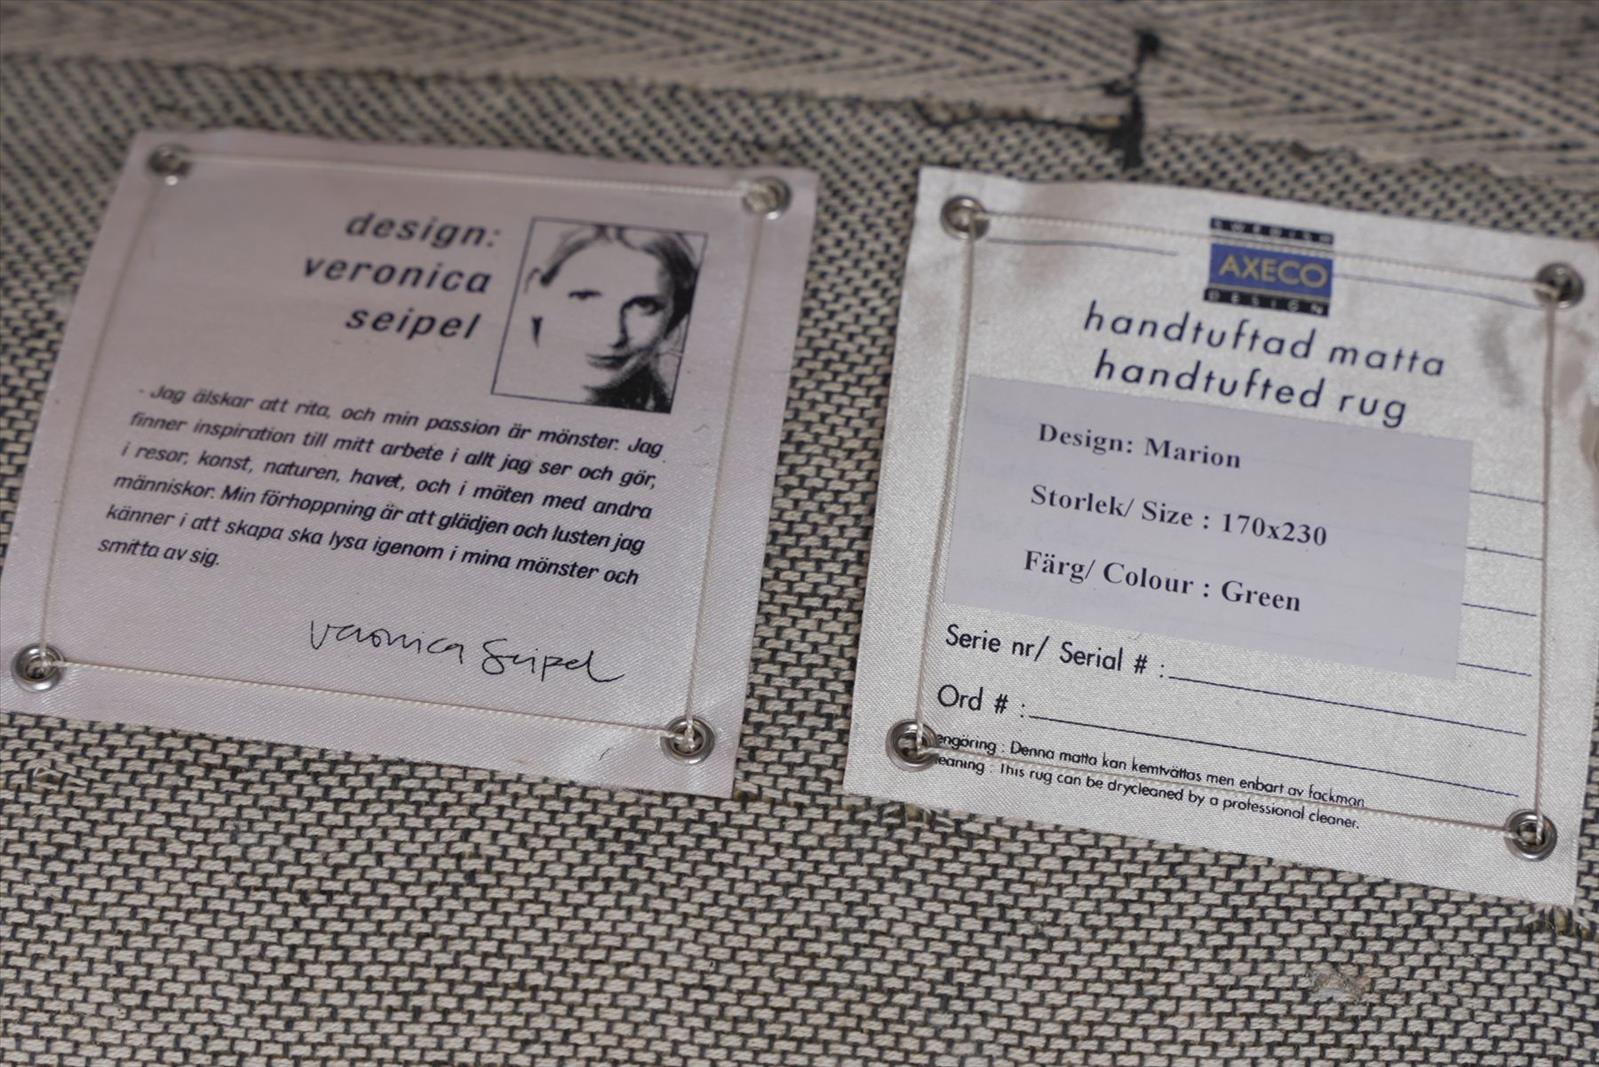 design:
veronica
seipel
- Jag älskar att rita, och min passion är mönster. Jag
finner inspiration till mitt arbete i allt jag ser och gör,
i resor, konst, naturen, havet, och i möten med andra
människor. Min förhoppning är att glädjen och lusten jag
känner i att skapa ska lysa igenom i mina mönster och
smitta av sig.
Veronica Seipel
SWEDISH
AXECO
DESIGN
handtuftad matta
handtufted rug
Design: Marion
Storlek/ Size : 170x230
Färg/ Colour : Green
Serie nr/ Serial # :
Ord # :
engöring : Denna matta kan kemtvättas men enbart av fackman
eaning : This rug can be drycleaned by a professional cleaner.